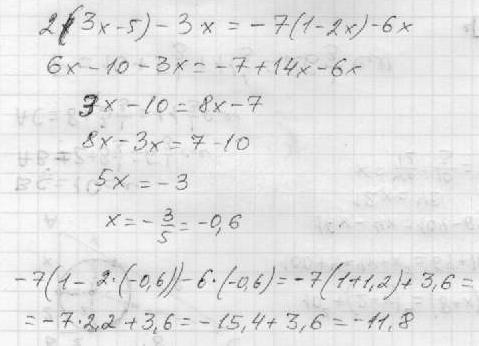 2(3x-5)-3x=-7(1-2x)-6x
6x-10-3x=-7+14x-6x
3x-10=8x-7
8x-3x=7-10
5x=-3
x=-3/5=-0,6
-7(1-2·(-0,6))-6·(-0,6)=-7(1+1,2)+3,6=
=-7·2,2+3,6=-15,4+3,6=-11,8